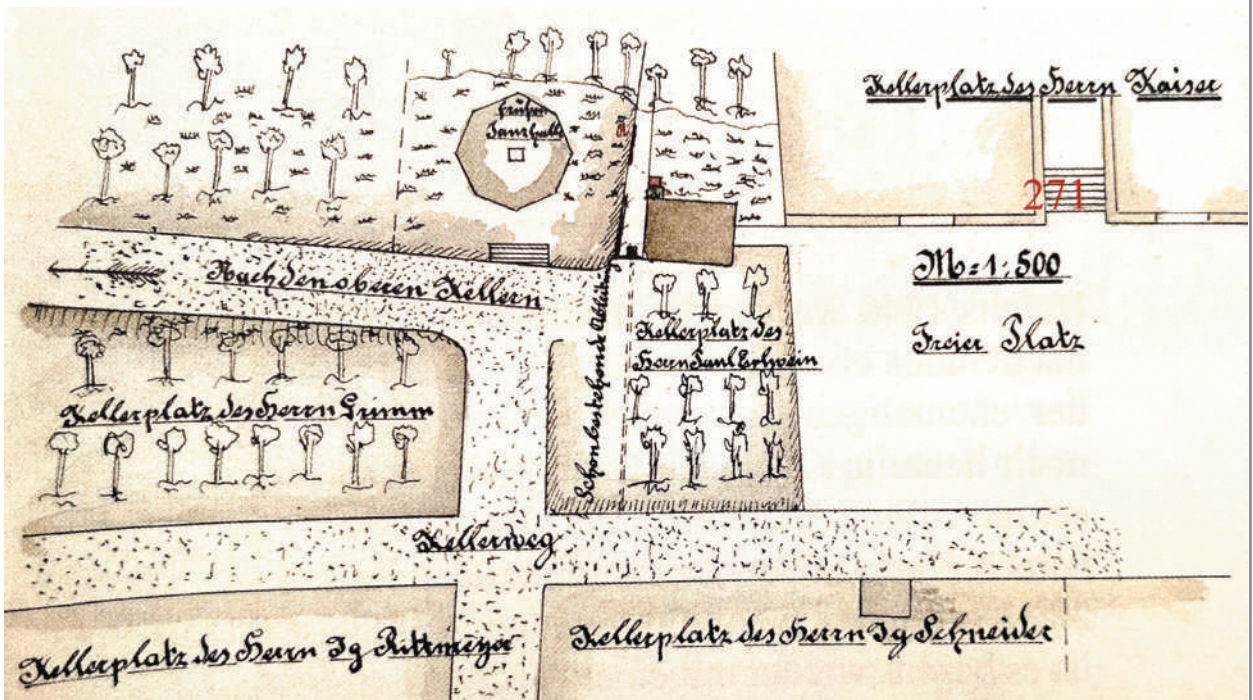 Kellerplatz des Herrn Kaiser
früher
Tanzhalle
a
271
M = 1:500
Freier Platz
Nach den oberen Kellern
Kellerplatz des
Herrn Paul Erlwein
Schon bestehende Ableitung
Kellerplatz des Herrn
Kellerweg
Kellerplatz des Herrn Jg Rittmeyer
Kellerplatz des Herrn Jg Schneider